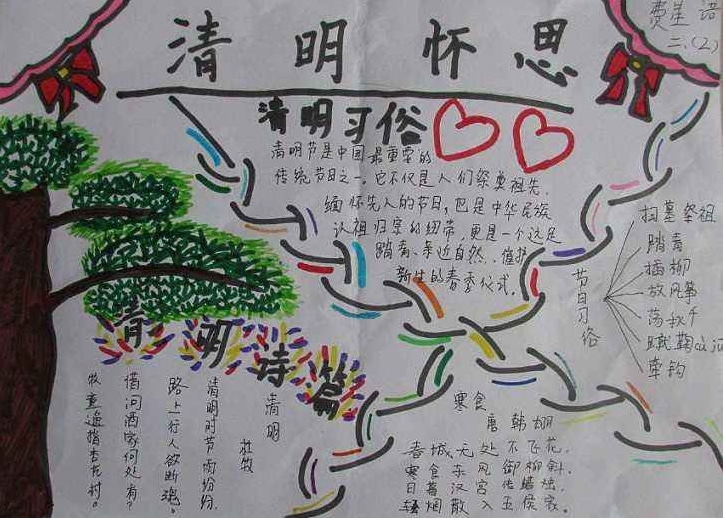 清明怀思
费星语
二.(2)
清明习俗
清明节是中国最重要的
传统节日之一,它不仅是人们祭奠祖先、
缅怀先人的节日,也是中华民族
认祖归宗的纽带,更是一个远足
踏青、亲近自然、催护
新生的春季仪式。
节日习俗
扫墓祭祖
踏青
插柳
放风筝
荡秋千
蹴鞠
牵钩
清明诗篇
清明
杜牧
清明时节雨纷纷,
路上行人欲断魂。
借问酒家何处有?
牧童遥指杏花村。
寒食
唐 韩翃
春城无处不飞花,
寒食东风御柳斜.
日暮汉宫传蜡烛,
轻烟散入五侯家.